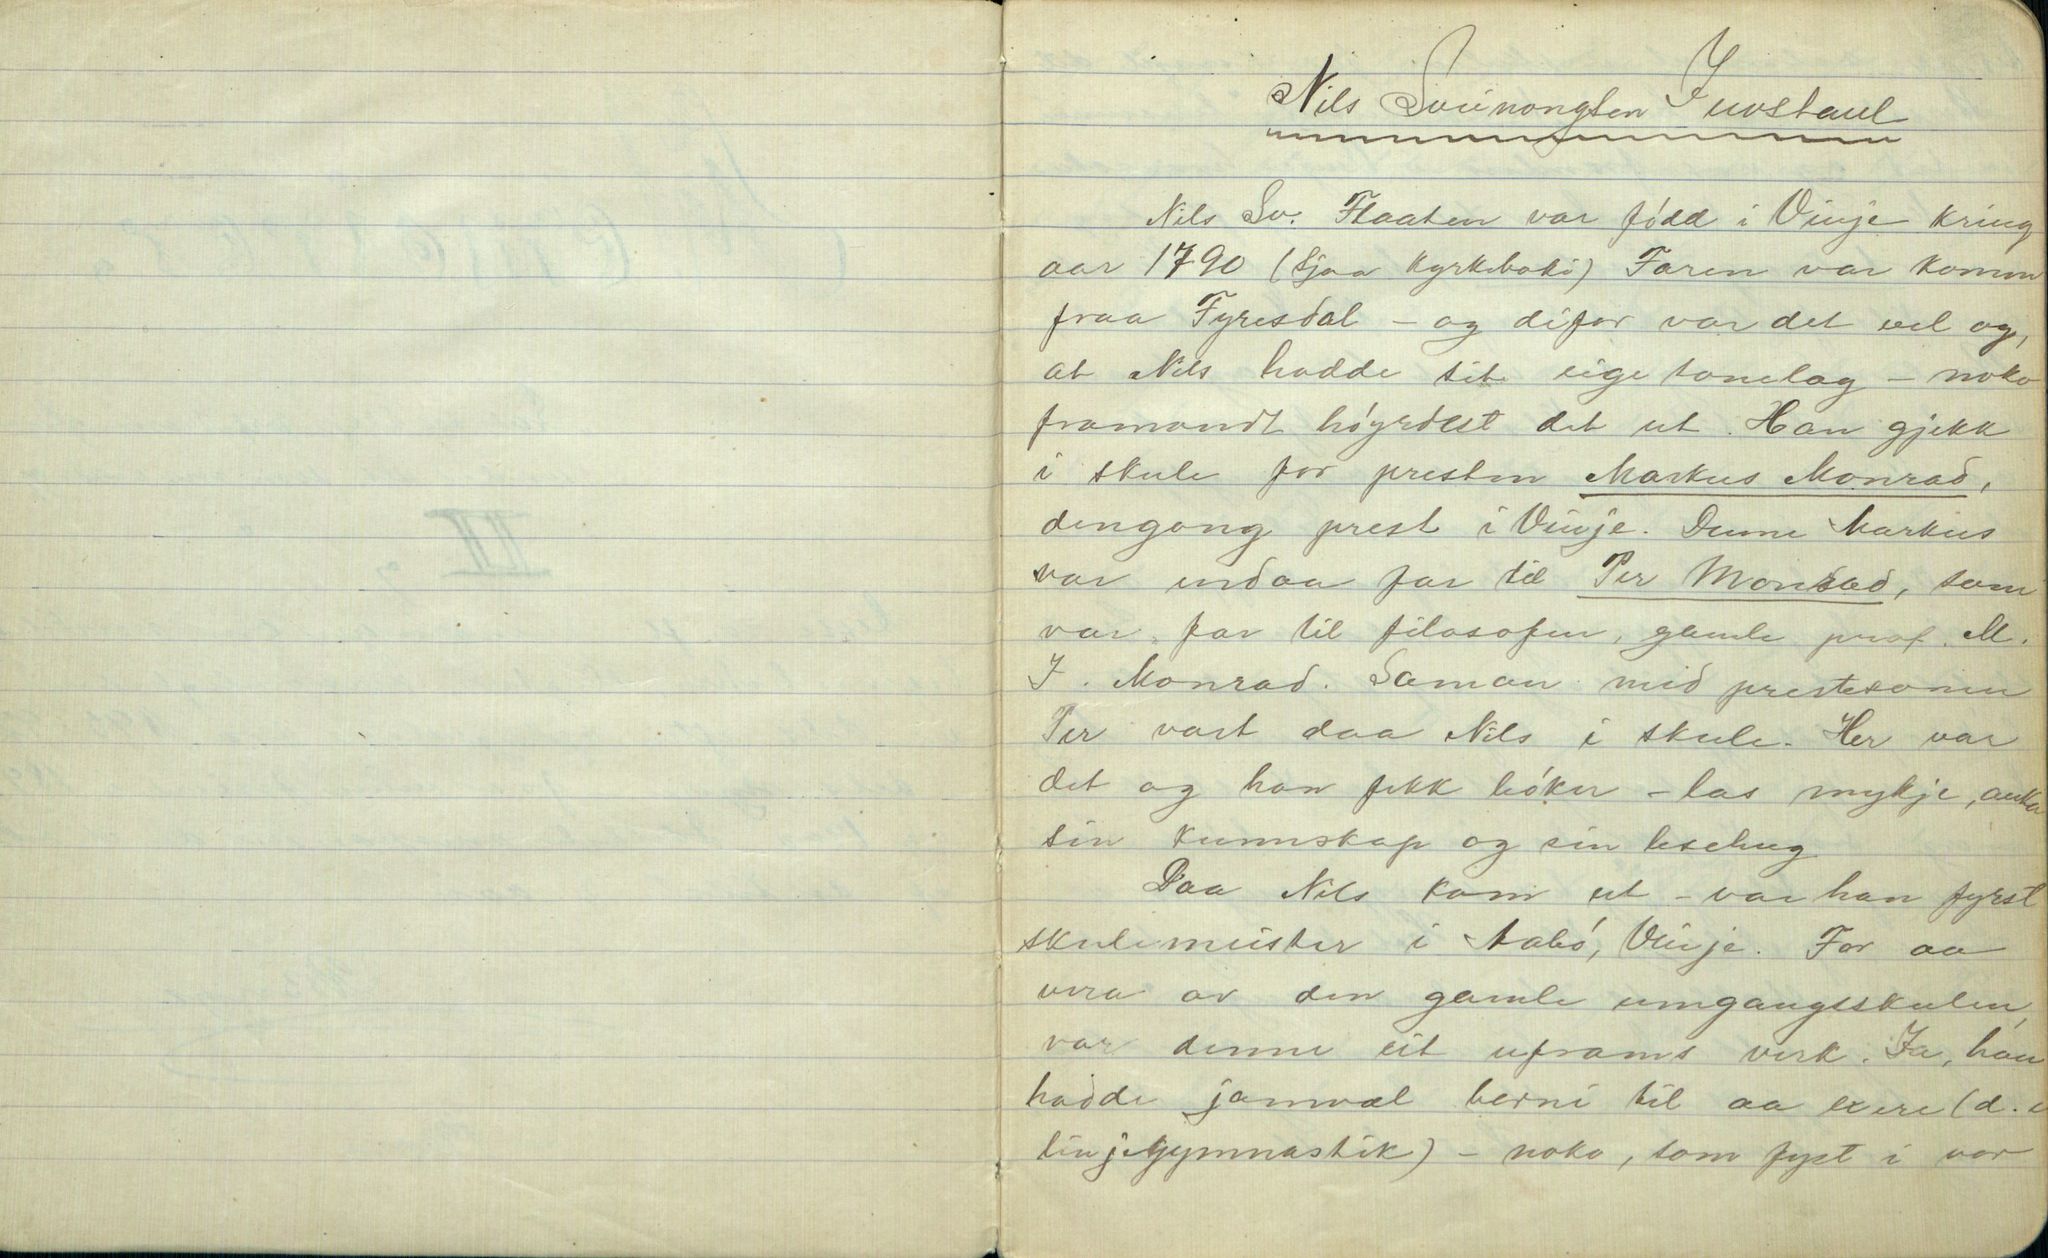 Nils Sveinongsen Juvstaul
Nils Sv. Flaaten var fødd i Vinje kring
aar 1790 (sjaa kyrkiboki) Faren var komen
fraa Fyresdal – og difor var det vel og,
at Nils hadde sit eige tonelag – noko
framandt høyrdest det ut. Han gjekk
i skule for presten Markus Monrad,
dengong prest i Vinje. Denne Markus
var endaa far til Per Monrad, som
var far til filosofen, gamle prof. M.
J. Monrad. Saman med prestesonen
Per vart daa Nils i skule. Her var
det og han fekk bøker – las mykje, auka
sin kunnskap og sin lesehug
Daa Nils kom ut – var han fyrst
skulemeister i Aabø, Vinje. For aa
vera av den gamle umgangsskulen,
var denne eit uframs verk. Ja, han
hadde jamvæl borni til aa exere (d. e
linjegymnastik) – noko, som fyst i vor